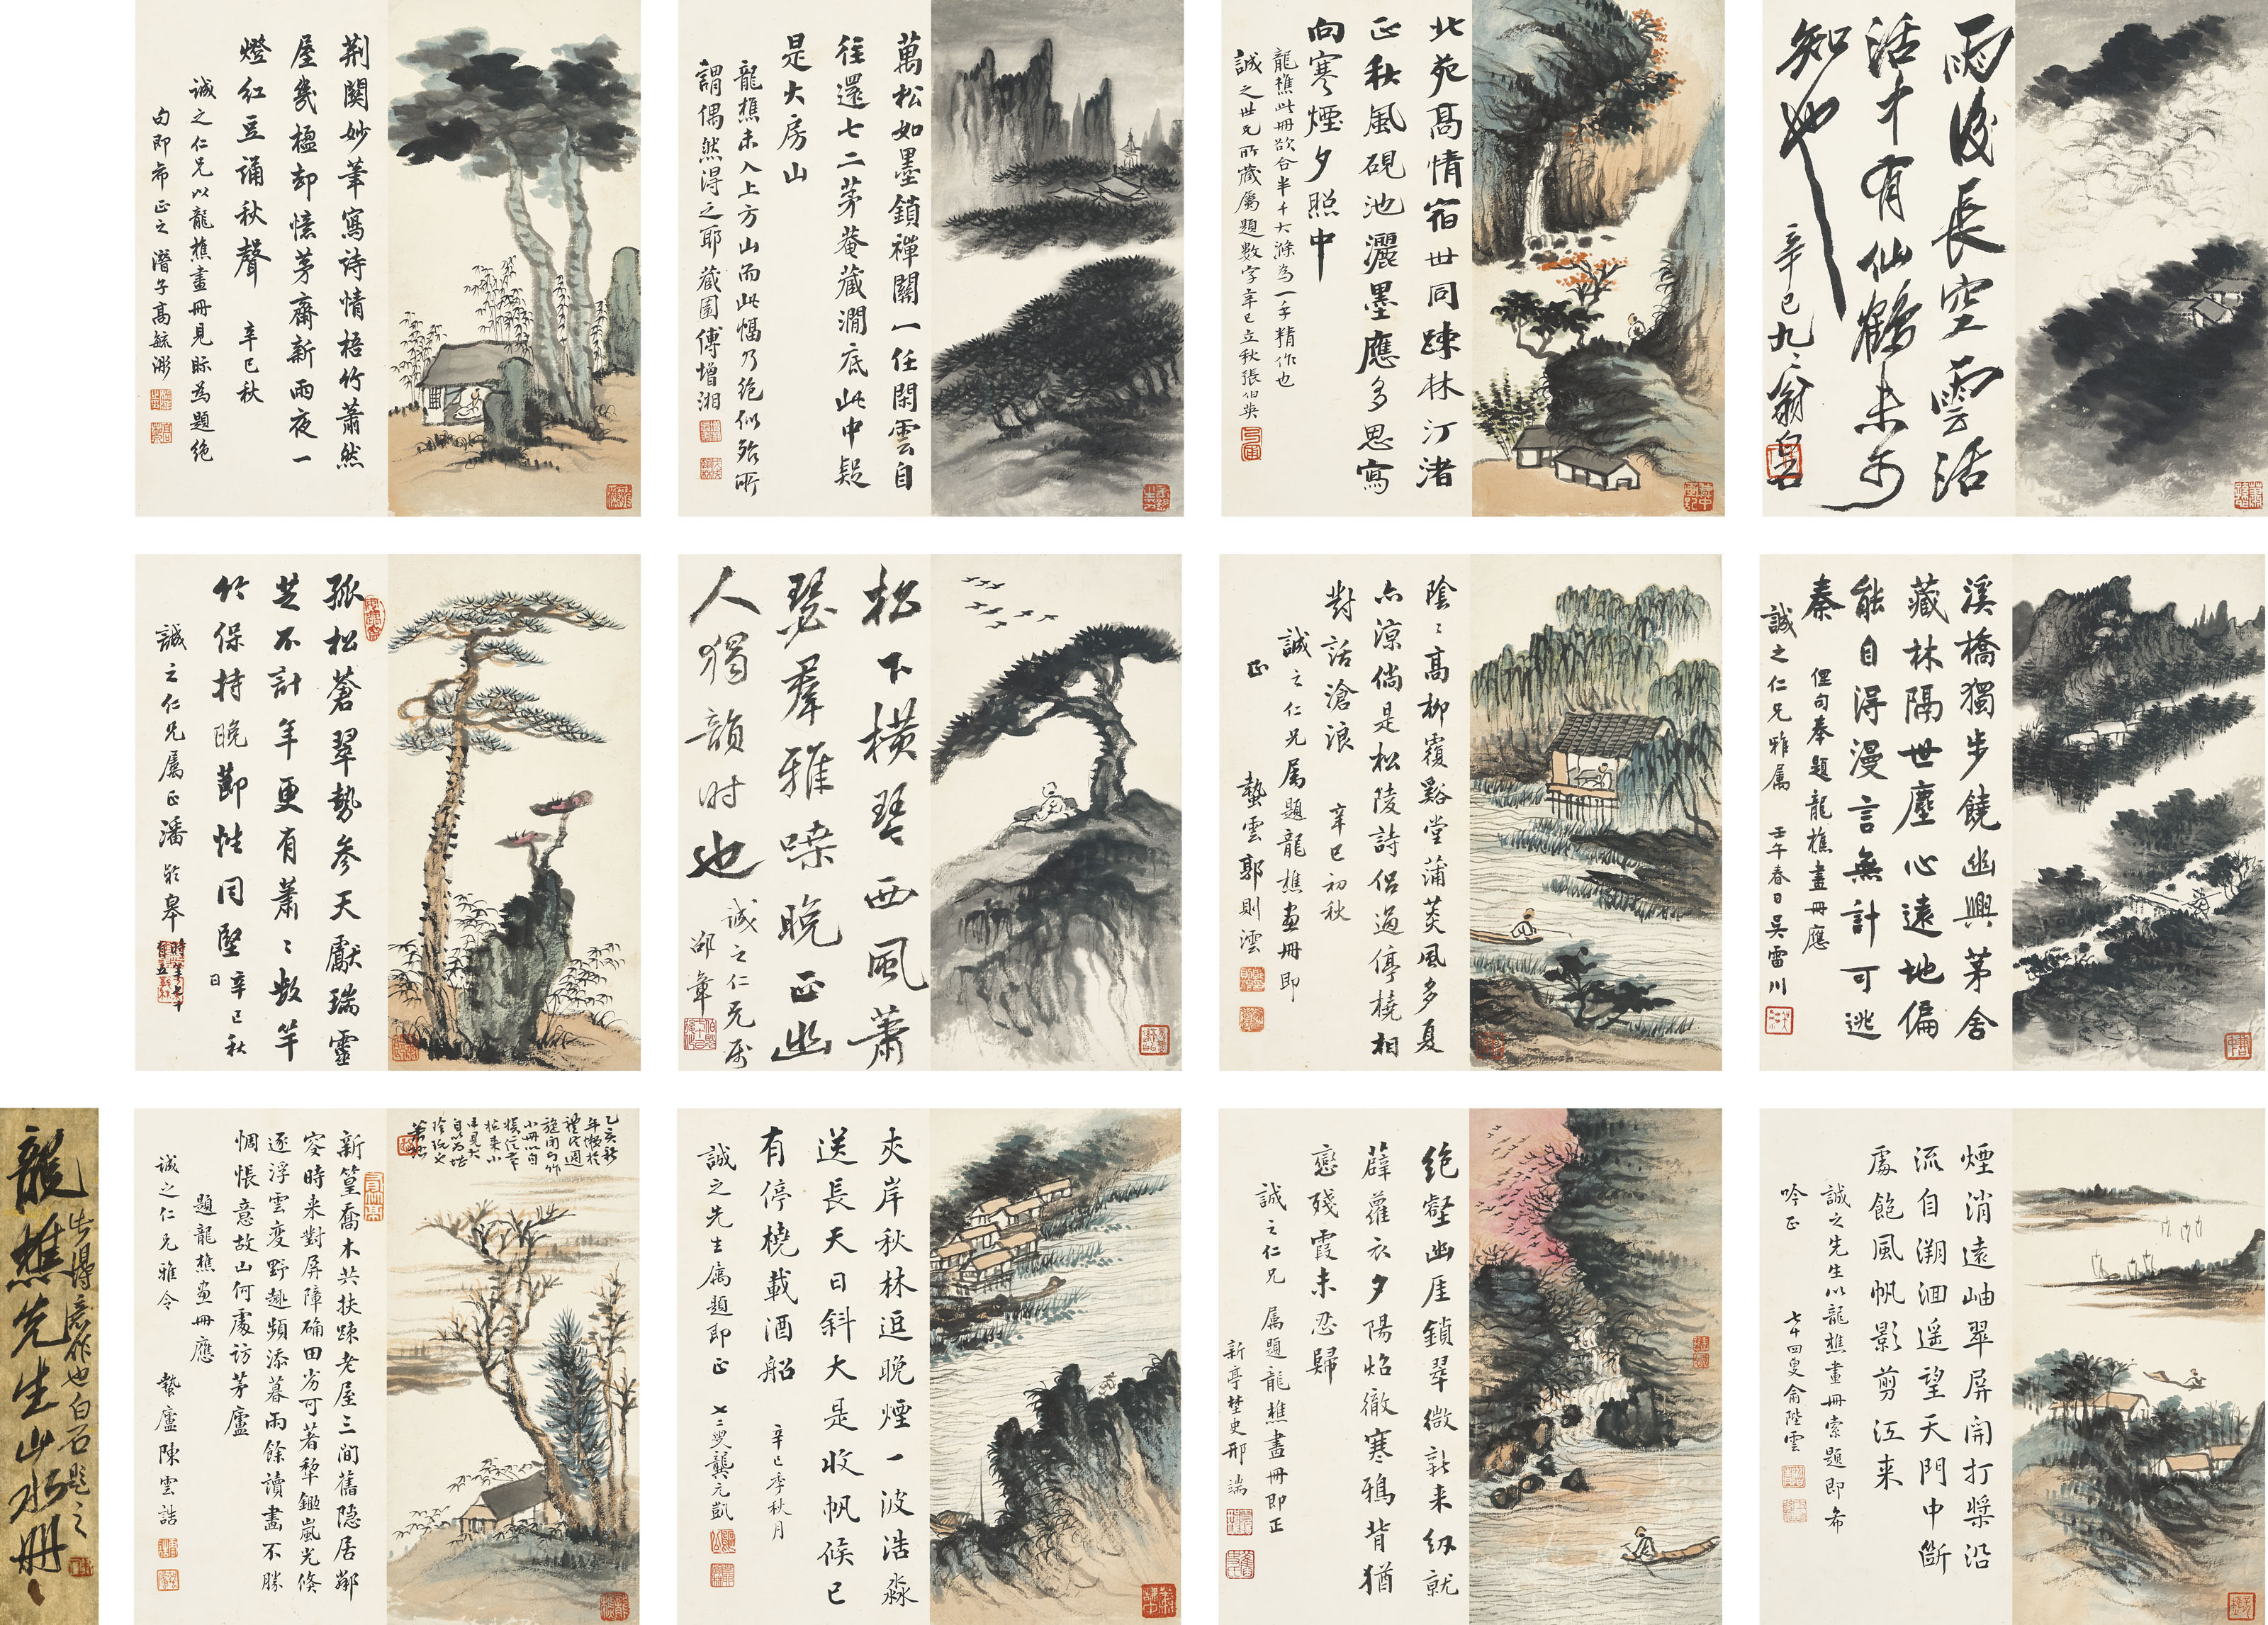 雨後長空雲活
活才有仙鶴未可
知也
辛巳九九翁白石
北苑高情宿世同疎林汀渚
正秋風硯池灑墨應多思寫
向寒煙夕照中
龍樵此冊欲合半千大滌為一手精作也
誠之世兄所藏屬題數字辛巳立秋張伯英
萬松如墨鎖禪關一任閑雲自
往還七二茅菴藏澗底此中疑
是大房山
龍樵未入上方山而此幅乃絶似殆所
謂偶然得之耶 藏園傅增湘
荆關妙筆寫詩情梧竹蕭然
屋幾楹却憶茅齋新雨夜一
燈紅豆誦秋聲 辛巳秋
誠之仁兄以龍樵畫冊見眎為題絶
句即希正之 潛子高毓浵
溪橋獨步饒幽興茅舍
藏林隔世塵心遠地偏
能自得漫言無計可逃
秦 俚句奉題龍樵畫冊應
誠之仁兄雅属 壬午春日吳雷川
陰陰高柳覆谿堂蒲茭風多夏
亦涼倘是松陵詩侶過停橈相
對話滄浪 辛巳初秋
誠之仁兄属題龍樵畫冊即
正 蟄雲郭則澐
松下橫琴西風蕭
瑟羣雅噪晚正幽
人獨韻时也
誠之仁兄属
邵章
孤松蒼翠勢參天獻瑞靈
芝不計年更有蕭蕭數竿
竹保持晚節性同堅 辛巳秋
日
誠之仁兄屬正潘齡皋
時年七十
有五
煙消遠岫翠屏開打槳沿
流自溯洄遥望天門中斷
處飽風帆影剪江来
誠之先生以龍樵畫冊索題即希
吟正 七十四叟俞陛雲
絶壑幽厓鎖翠微新来纫就
薜蘿衣夕陽焰徹寒鴉背猶
戀殘霞未忍歸
誠之仁兄 属題龍樵畫冊即正
新亭埜史邢端
夾岸秋林逗晚煙一波浩淼
送長天日斜大是收帆候已
有停橈載酒船 辛巳季秋月
誠之先生属題即正 七二叟龔元凱
乙亥秋
新篁喬木共扶疎老屋三間舊隐居鄰
容時来對屏障确田劣可著犁鋤嵐光倏
逐浮雲変野趣頻添暮雨餘讀畫不勝
惆悵意故山何處访茅廬
題龍樵画冊應
誠之仁兄雅令 蟄廬陳雲誥
龍樵先生山水冊
此得意作也白石題之